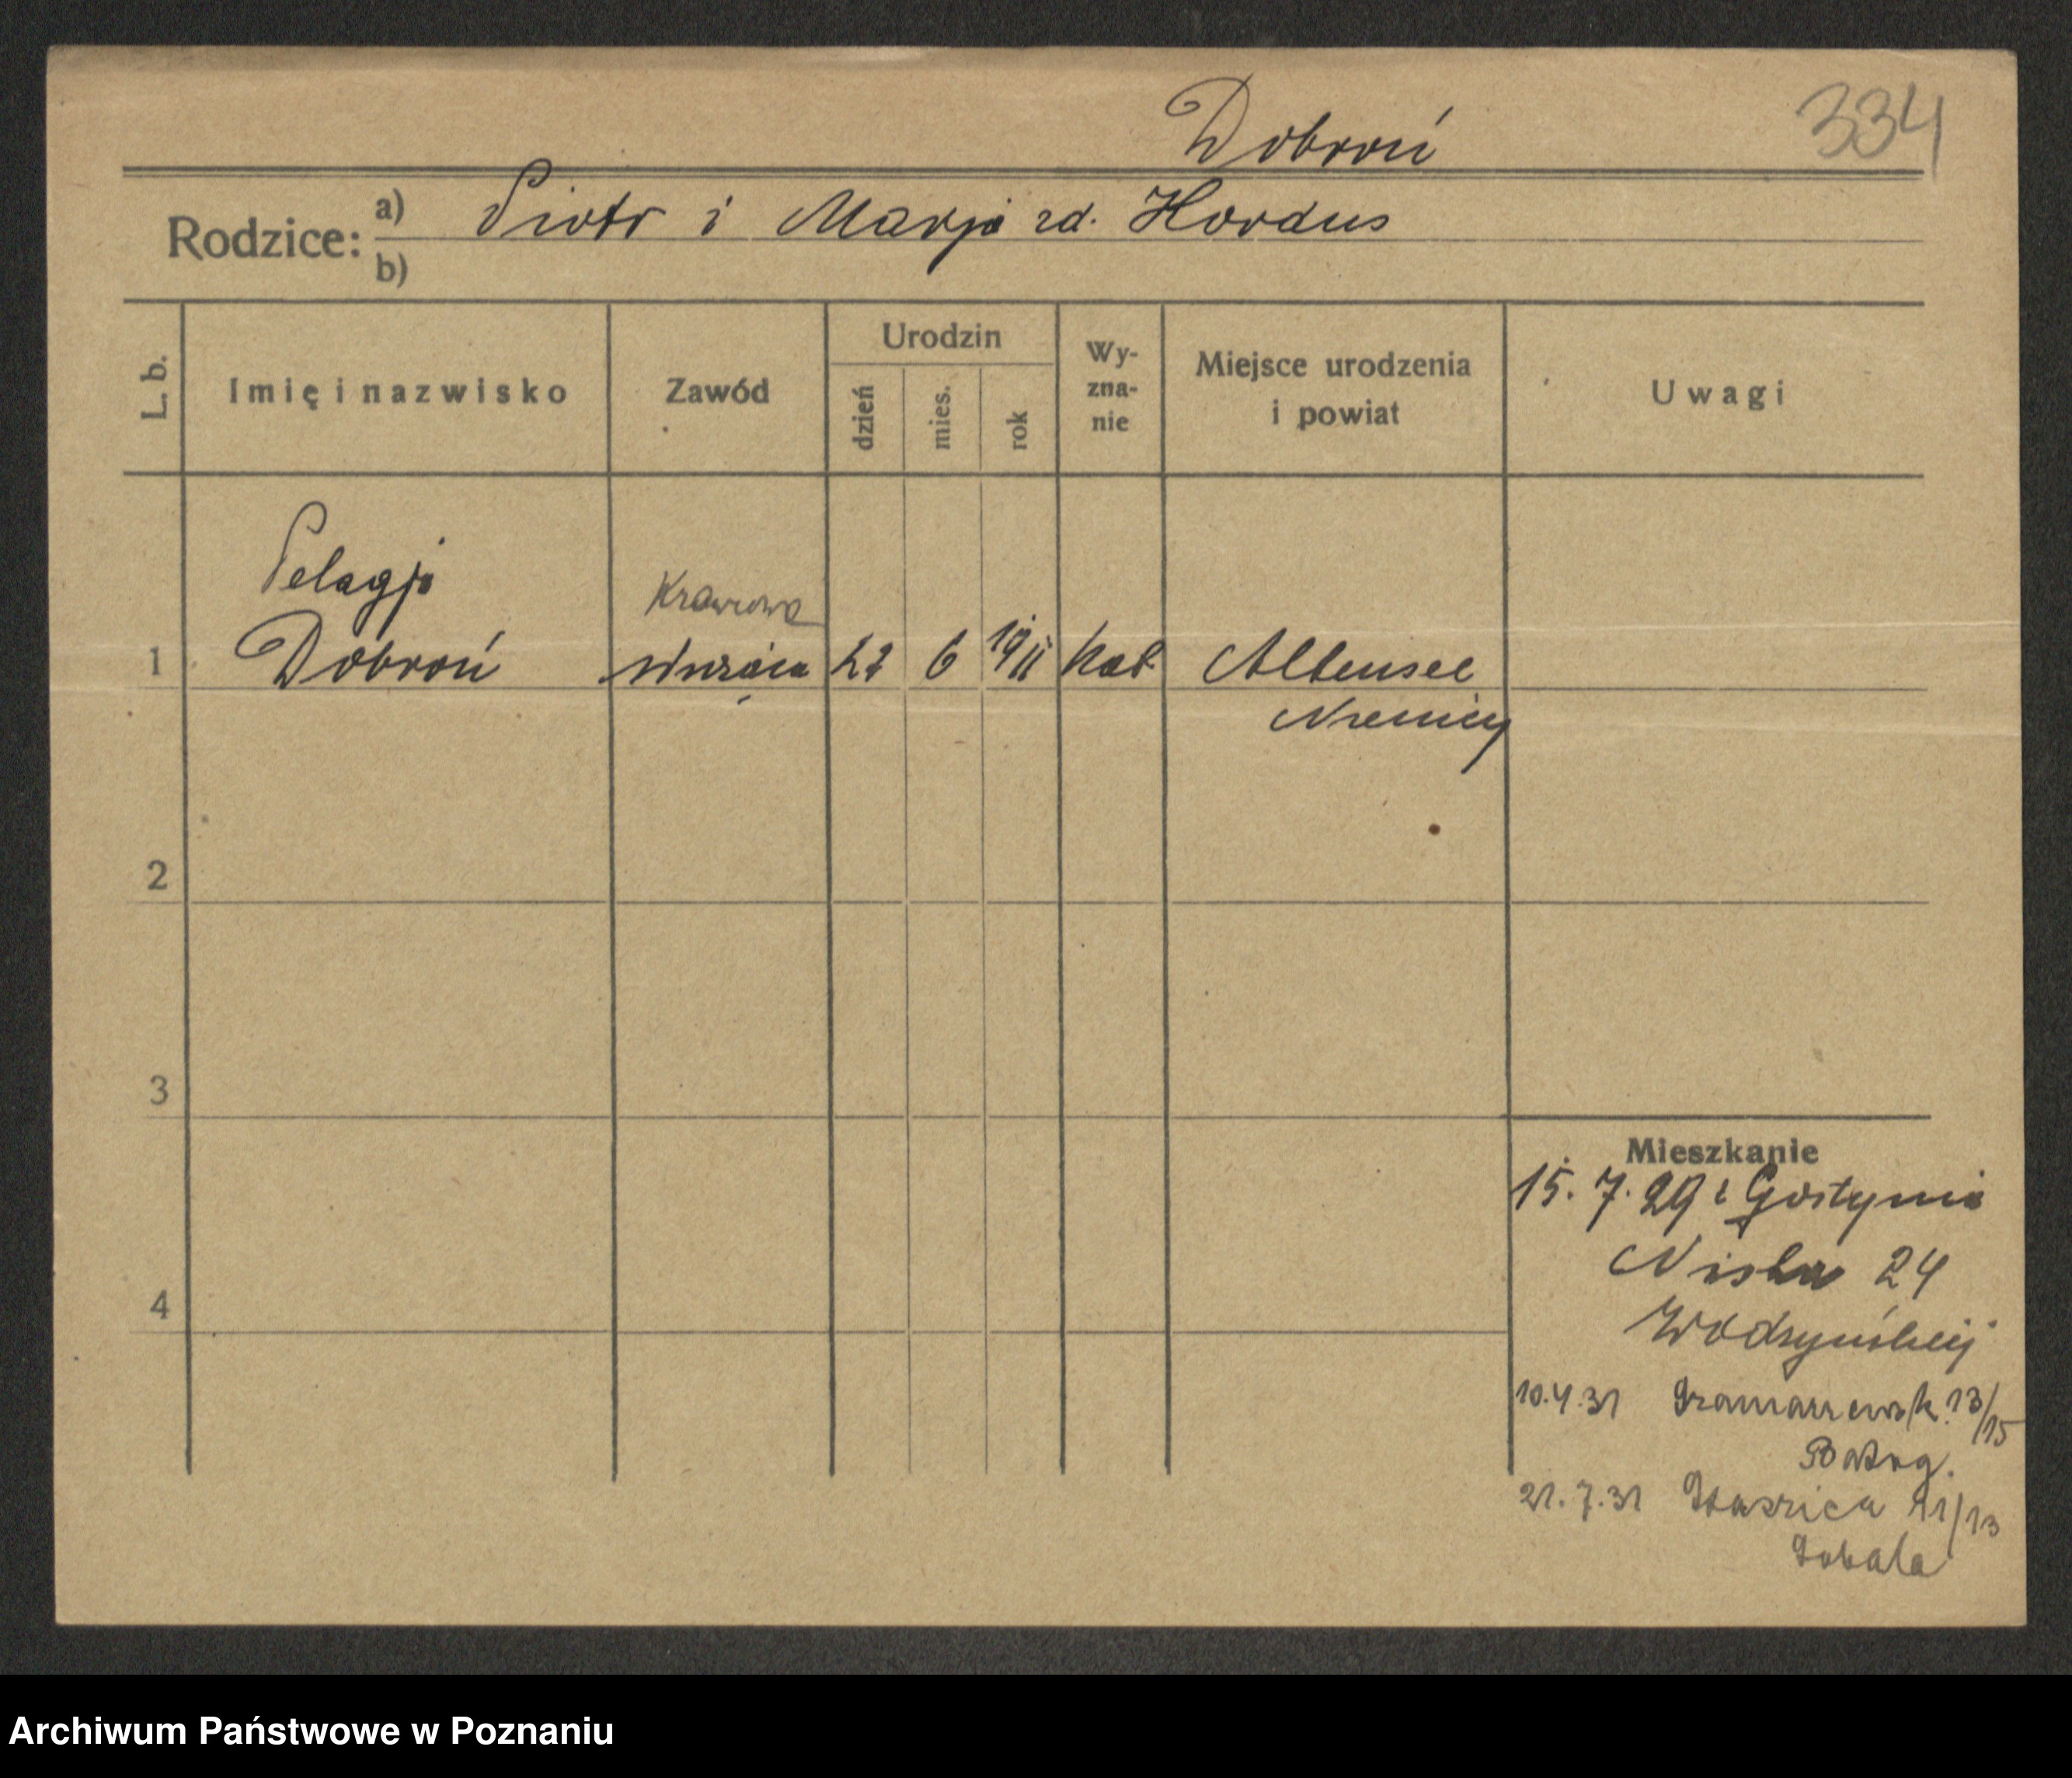 334
Dobroń
Rodzice: a) Piotr i Marja zd. Hordus
b)
L. b. Imię i nazwisko Zawód Urodzin dzień mies. rok Wy-zna-nie Miejsce urodzenia i powiat Uwagi
Pelagja
Krawcowa
1 Dobroń służąca 22 6 1911 kat Altensee
Niemcy
2
3
Mieszkanie
15. 7. 29 z Gostynia
4 Niska 24
Wodzyńskiej
10.4.31 13/15
21.7.31 Staszica 11/13
Archiwum Państwowe w Poznaniu